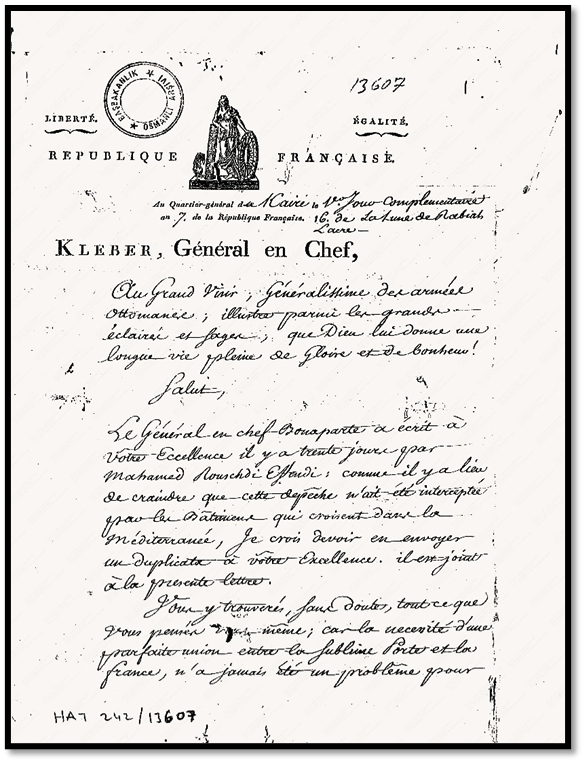 13607
BAŞBAKANLIK ★ ARŞİVİ ★ OSMANLI
LIBERTÉ.
ÉGALITÉ.
REPUBLIQUE FRANÇAISE.
Au Quartier-général du Kaire le 1er Jour Complementaire
an 7. de la République Française. 16. de la Lune de Rabiah
KLEBER, Général en Chef,
Au Grand Visir, Généralissime des armées
Ottomanes; illustre parmi les grands
éclairés et sages, que Dieu lui donne une
longue vie pleine de Gloire et de bonheur!
Salut,
Le Général en chef Bonaparte a écrit à
Votre Excellence il y a trente jours par
Mahamed Rouschdi Effendi: comme il y a lieu
de craindre que cette depêche n'ait été interceptée
par les Bâtimens qui croisent dans la
Méditerranée, Je crois devoir en envoyer
un duplicata à vôtre Excellence. il est joint
à la presente lettre.
Vous y trouverés, sans doute, tout ce que
Vous pensés même; car la necessité d'une
parfaite union entre la Sublime Porte et la
france, n'a jamais été un problême pour
HAT 242/13607